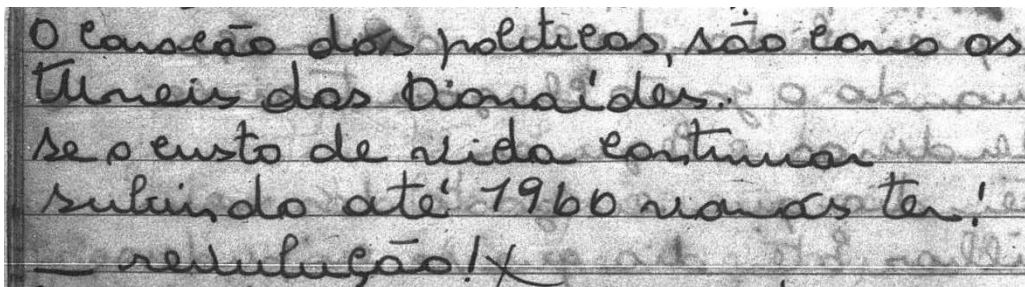 O coração dos politicos, são como os
tuneis das Dionaídes.
se o custo de vida continuar
subindo até 1960 vamos ter!
— revulução!X